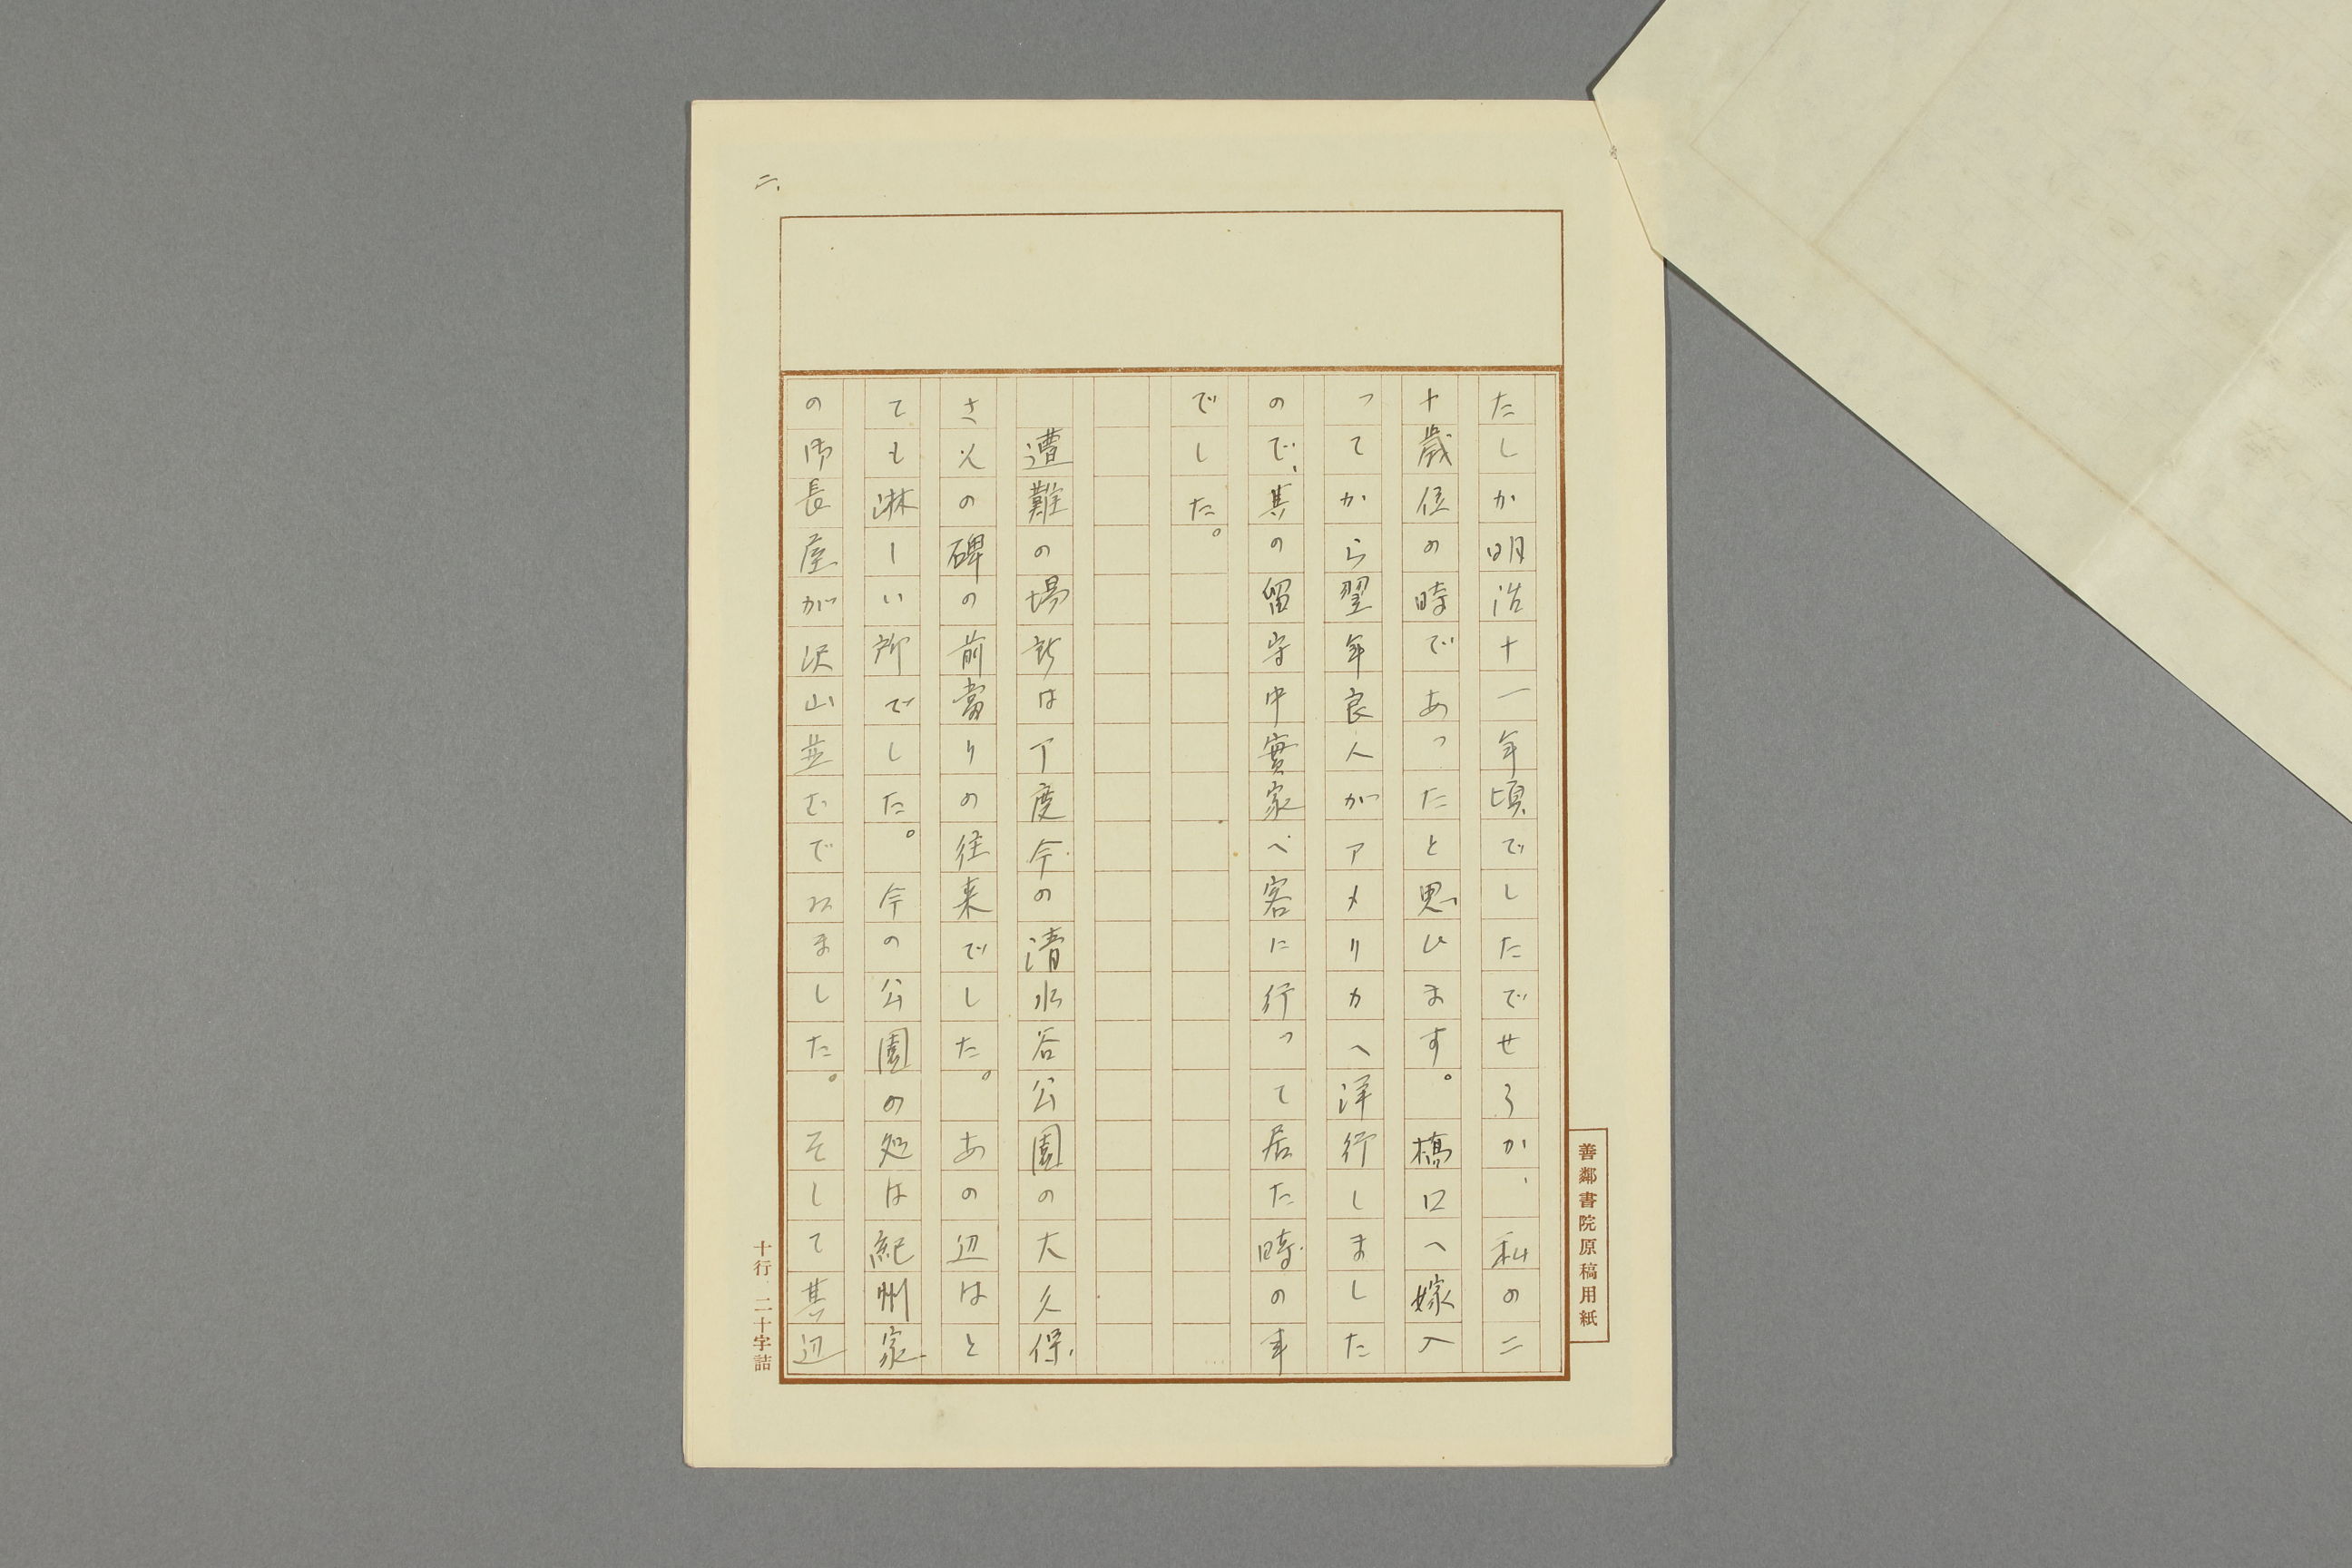 二、
たしか明治十一年頃でしたでせうか、私の二
十歳位の時であったと思ひます。橋口へ嫁入
ってから翌年良人がアメリカへ洋行しました
ので、其の留守中實家へ客に行って居た時の事
でした。
遭難の場所は丁度今の清水谷公園の大久保
さんの碑の前當りの往来でした。あの辺はと
ても淋しい所でした。今の公園の処は紀州家
の御長屋が沢山並むでゐました。そして其辺
善鄰書院原稿用紙
十行 二十字詰